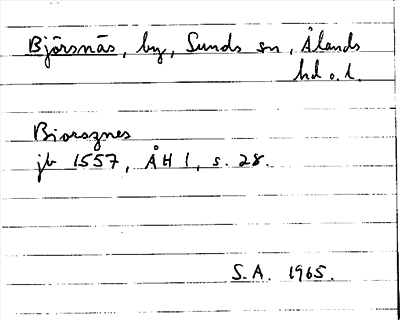 Björsnäs, by, Sunds sn, Ålands
hd o. l.
Biorsznes
jb 1557, ÅH 1, s. 28.
S.A. 1965.